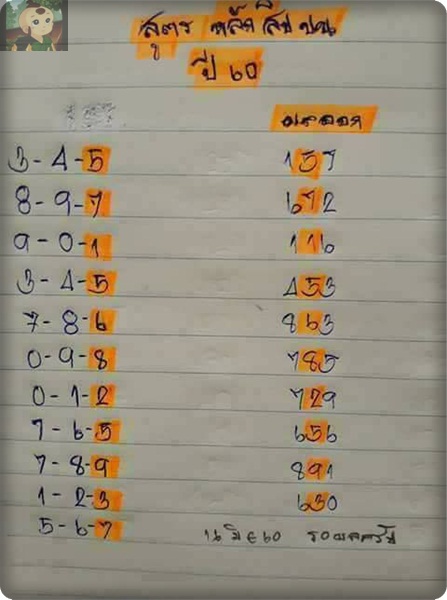 สูตร หลักสิบ บน
ปี 60
ผลออก
3-4-5 157
8-9-7 672
9-0-1 116
3-4-5 453
7-8-6 863
0-9-8 785
0-1-2 729
7-6-5 656
7-8-9 891
1-2-3 630
5-6-7 16 มิย 60 รอผลครับ